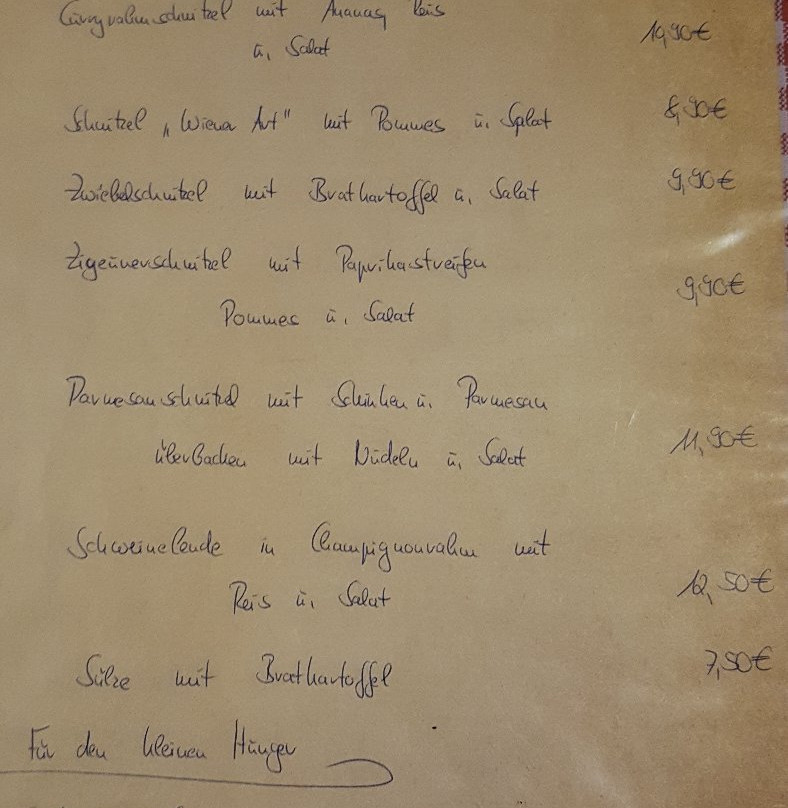 Curryrahmschnitzel mit Ananas, Reis
u. Salat 10,90€
Schnitzel „Wiener Art" mit Pommes u. Salat 8,90€
Zwiebelschnitzel mit Bratkartoffel u. Salat 9,90€
Zigeunerschnitzel mit Paprikastreifen
Pommes u. Salat 9,90€
Parmesanschnitzel mit Schinken u. Parmesan
überbacken mit Nudeln u. Salat 11,90€
Schweinelende in Champignonrahm mit
Reis u. Salat 12,50€
Sülze mit Bratkartoffel 7,50€
Für den kleinen Hunger